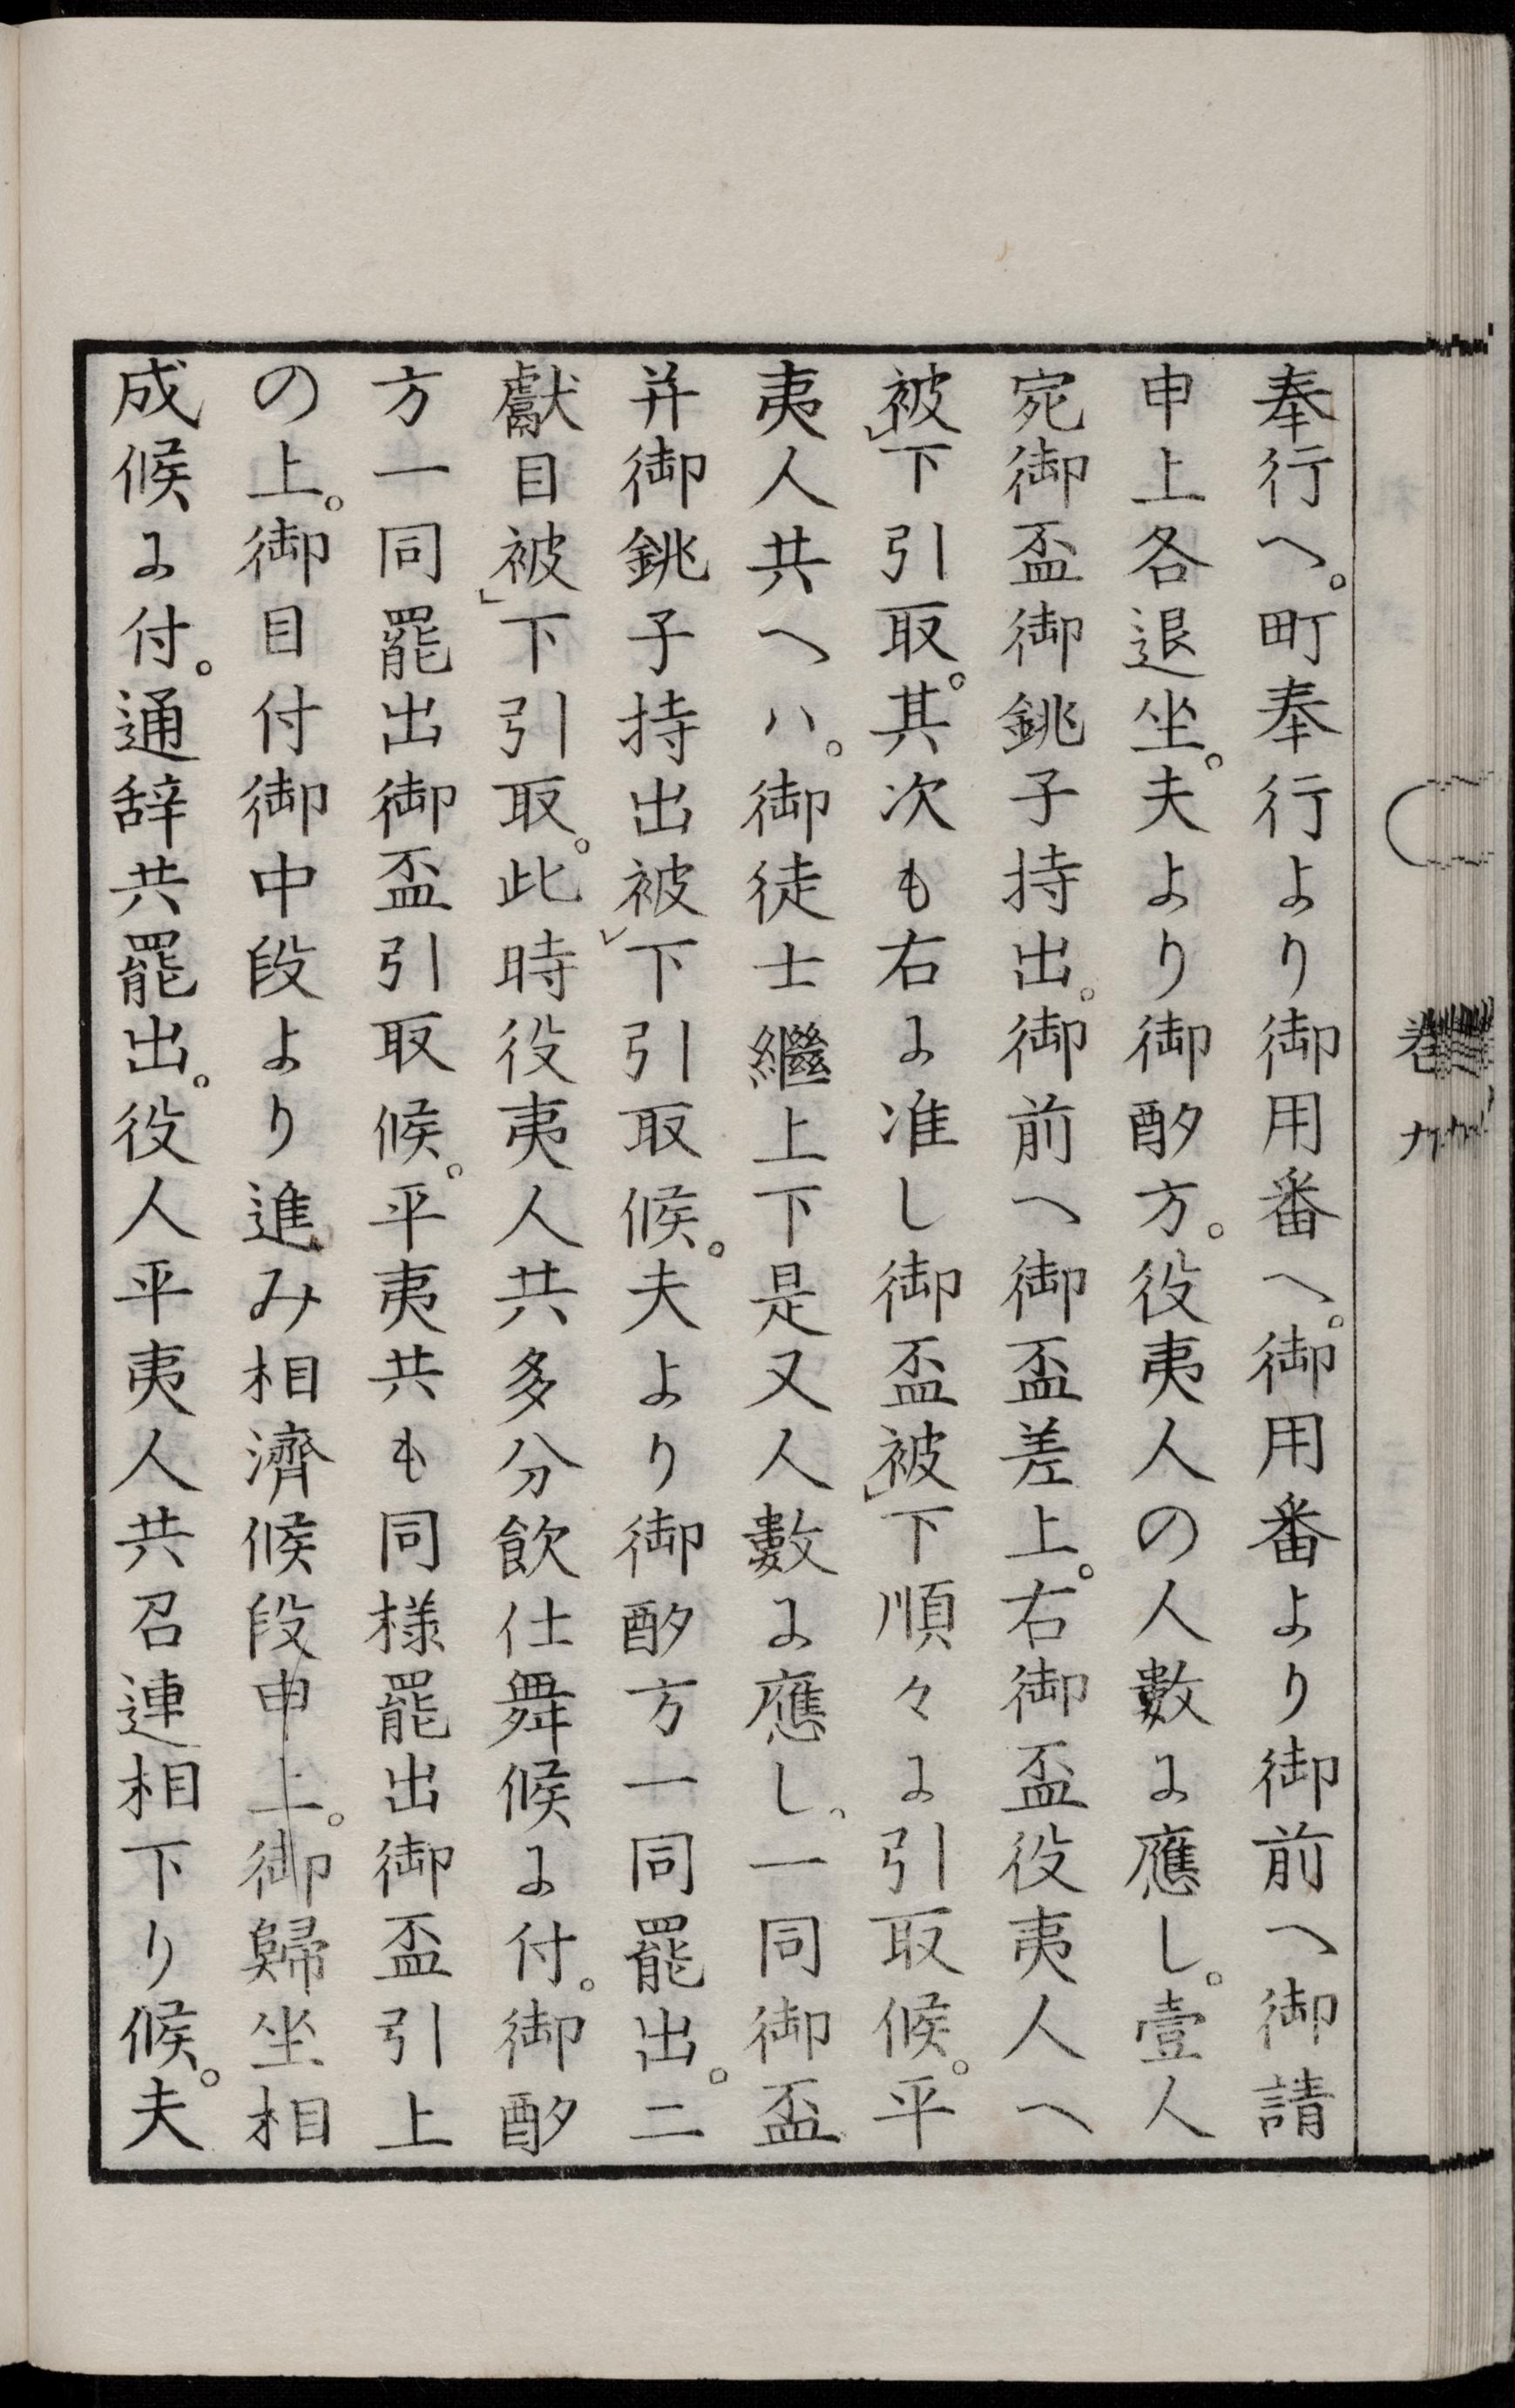 奉行へ。町奉行より御用番へ。御用番より御前へ御請
申上各退坐。夫より御酌方。役夷人の人數に應し。壹人
宛御盃御銚子持出。御前へ御盃差上。右御盃役夷人へ
被下引取。其次も右に准し御盃被下順々に引取候。平
夷人共へハ。御徒士繼上下是又人數に應し。一同御盃
并御銚子持出被下引取候。夫より御酌方一同罷出。二
獻目被下引取。此時役夷人共多分飲仕舞候に付。御酌
方一同罷出御盃引取候。平夷共も同様罷出御盃引上
の上。御目付御中段より進み相濟候段申上。御歸坐相
成候に付。通辞共罷出。役人平夷人共召連相下り候。夫
卷九